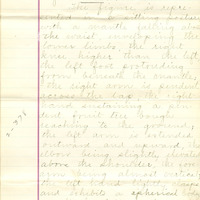 The figure is repre-
sented in a sitting posture
with a mantle falling about
the waist, enveloping the
lower limbs, the right
knee higher than the left
the left foot protruding
from beneath the mantle,
the right arm is pendent
across the lap the right
hand sustaining a plu-
dent fruit tree bough
reaching to the ground;
the left arm is extended
outward and upward, the
elbow being slightly elevated
above the shoulder, the fore
arm being almost vertical;
the left hand
and exhibits a spherical body